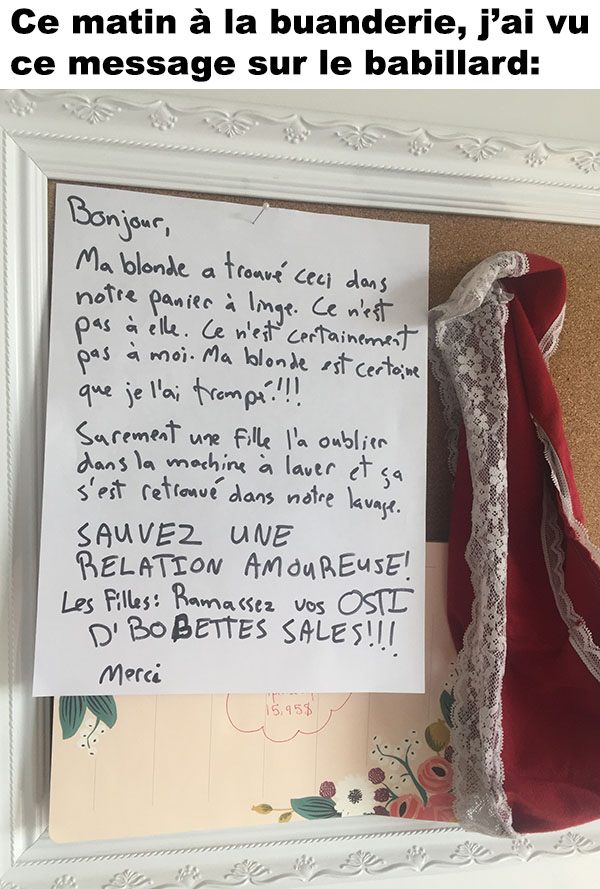 Ce matin à la buanderie, j’ai vu
ce message sur le babillard:
Bonjour,
Ma blonde a trouvé ceci dans
notre panier à linge. Ce n'est
pas à elle. Ce n'est certainement
pas à moi. Ma blonde est certaine
que je l'ai trompé!!!
Surement une fille l'a oublier
dans la machine à laver et ça
s'est retrouvé dans notre lavage.
SAUVEZ UNE
RELATION AMOUREUSE!
Les Filles: Ramassez vos OSTI
D'BOBETTES SALES!!!
Merci
15,95$